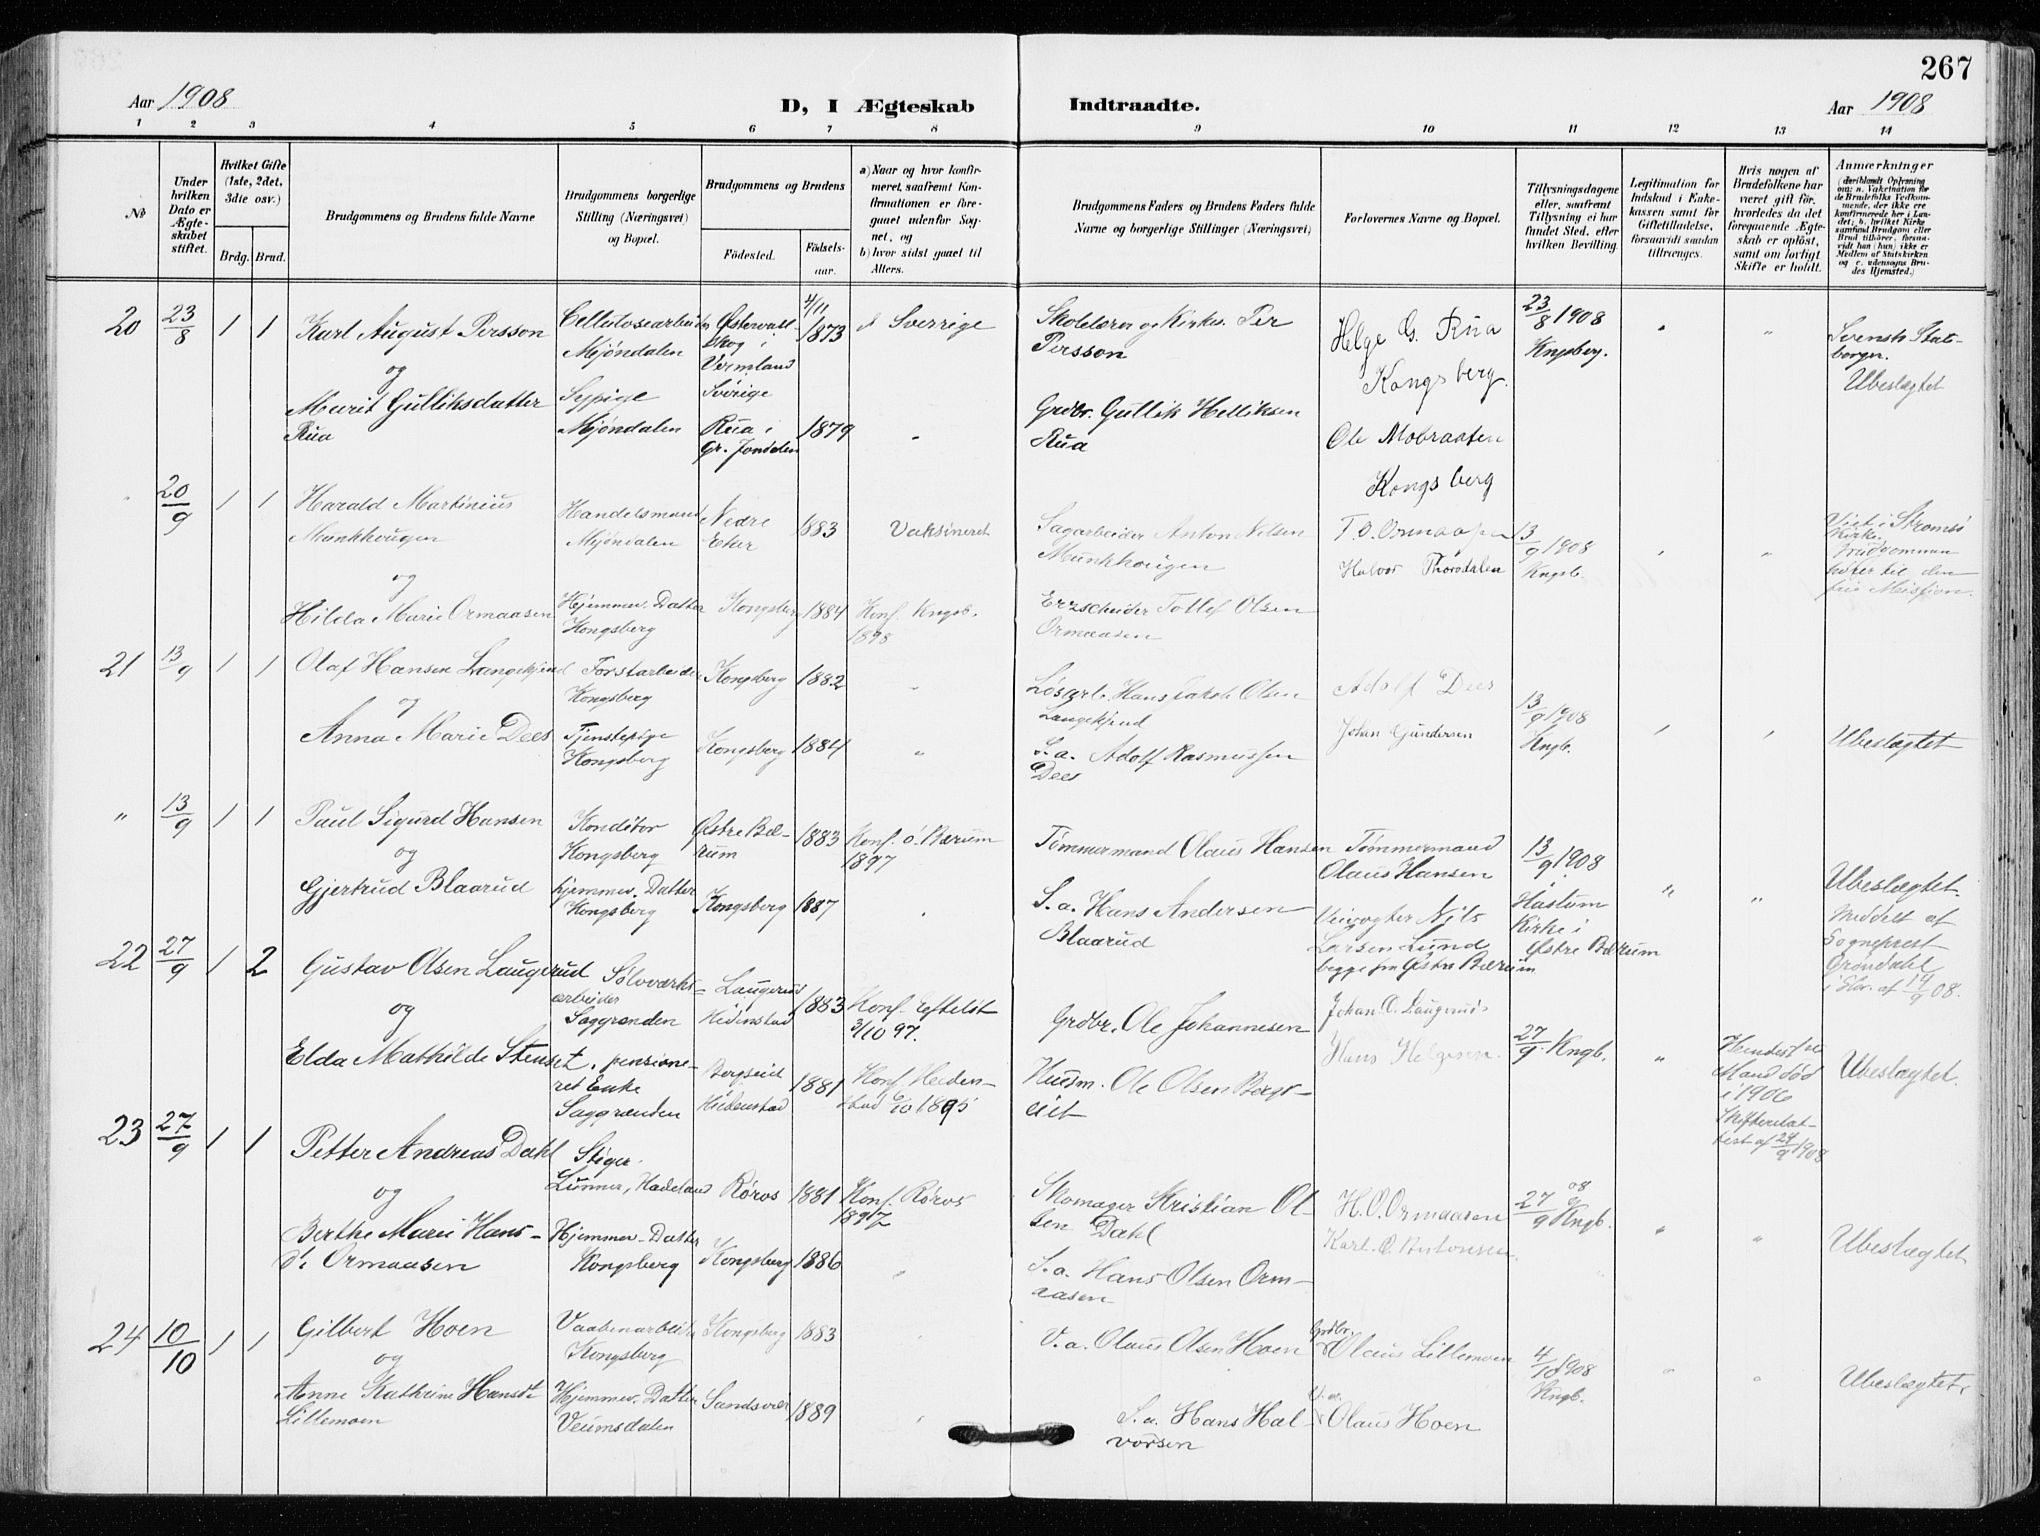 267
Aar 1908
D, I Ægteskab
Indtraadte.
Aar 1908
1 2 3 4 5 6 7 8 9 10 11 12 13 14
No
Under hvilken Dato er Ægteskabet stiftet.
Hvilket Gifte (1ste, 2det, 3die osv.)
Brdg. Brud.
Brudgommens og Brudens fulde Navne
Brudgommens borgerlige Stilling (Næringsvei) og Bopæl.
Brudgommens og Brudens
Födested.
Födsels-aar.
a) Naar og hvor konfirmeret, saafremt Konfirmationen er foregaaet udenfor Sognet, og
b) hvor sidst gaaet til Alters.
Brudgommens Faders og Brudens Faders fulde Navne og borgerlige Stillinger (Næringsvei)
Forlovernes Navne og Bopæl.
Tillysningsdagene eller, saafremt Tillysning ei har fundet Sted, efter hvilken Bevilling.
Legitimation for Indskud i Enkekassen samt for Giftetilladelse, forsaavidt saadan tiltrænges.
Hvis nogen af Brudefolkene har været gift för, hvorledes da det foregaaende Ægteskab er oplöst, samt om lovligt Skifte er holdt.
Anmærkninger
20 23/8 1 1
Karl August Persson
og
Marit Gulliksdatter
Rua
Cellulosearbeider
Mjöndalen
Sypige
Mjöndalen
Östervallskog i
Vermland
Sverige
Rua i
Gr. Jondalen
4/11 1873
1879
Sverrige
"
Skolelærer og Kirkes. Per
Persson
Grdbr. Gullik Helliksen
Rua
Helge G. Rua
Kongsberg.
Ole Mobraaten
Kongsberg
23/8 1908
Kngsberg.
" "
Svensk Statsborger.
Ubeslægtet
" 20/9 1 1
Harald Martinius
Munkhougen
og
Hilda Marie Ormaasen
Handelsmand
Mjöndalen
Hjemmev. Datter
Kongsberg
Nedre
Eker
Kongsberg
1883
1884
Vaksineret
Konf. Kngsb.
1898
Sagarbeider Anton Nilsen
Munkhougen
Erzscheider Tollef Olsen
Ormaasen
T. O. Ormaasen
Halvor Thorsdalen
13/9 1908
Kngsb.
Viet i Strömsö
Kirke,
Brudgommen
hörer til den
frie Mission.
21 13/9 1 1
Olaf Hansen Langekjend
og
Anna Marie Dees
Forstarbeider
Kongsberg
Tjenstepige
Kongsberg
Kongsberg
Kongsberg
1882
1884
" "
Lösarb. Hans Jakob Olsen
Langekjend
S.a. Adolf Rasmussen
Dees
Adolf Dees
Johan Gundersen
13/9 1908
Kngb.
Ubeslægtet
" 13/9 1 1
Paul Sigurd Hansen
og
Gjertrud Blaarud
Konditor
Kongsberg
hjemmev. Datter
Kongsberg
Östre Bærum
Kongsberg
1883
1887
Konf. ö. Bærum
1897
Tömmermand Olaus Hansen
S.a. Hans Andersen
Blaarud
Tömmermand
Olaus Hansen
Veivogter Nils
Larsen Lund
begge fra Östre Bærum
13/9 1908
Haslum
Kirke i
Östre Bærum
" "
Ubeslægtet.
Meddelt af
Sogneprest
Gröndahl
i Skr. af 14/9 08.
22 27/9 1 2
Gustav Olsen Laugerud
og
Elda Mathilde Stenset,
Sölvverksarbeider
Saggrenden
pensioneret Enke
Saggrenden
Laugerud
Hedenstad
Bergseid
Hedenstad
1883
1881
Konf. Efteløt
3/10 97.
Konf. Hedenstad 6/10 1895
Grdbr. Ole Johannesen
Husm. Ole Olsen Bergseit
Johan. O. Laugerud
Hans Helgesen
27/9 Kngb.
"
Hendes frie
Mand död
i 1906
Skifteretattest af 24/9 1908
Ubeslægtet.
23 27/9 1 1
Petter Andreas Dahl
og
Berthe Marie Hansd. Ormaasen
Stiger
Lunner, Hadeland
Hjemmev. Datter
Kongsberg
Röros
Kongsberg
1881
1886
Konf. Röros
1897
"
Skomager Kristian Olsen Dahl
S.a. Hans Olsen Ormaasen
H. O. Ormaasen
Karl. O. Antonsen
27/9 08 Kngb.
" "
Ubeslægtet
24 10/10 1 1
Gilbert Hoen
og
Anne Kathrine Hansdt.
Lillemoen
Vaabenarbeider
Kongsberg
Hjemmev. Datter
Veumsdalen
Kongsberg
Sandsvær
1883
1889
V.a. Olaus Olsen Hoen
S.a. Hans Halvorsen
Grdbr. Olaus Lillemoen
V.a. Olaus Hoen
4/10 1908
Kngb.
" "
Ubeslægtet.